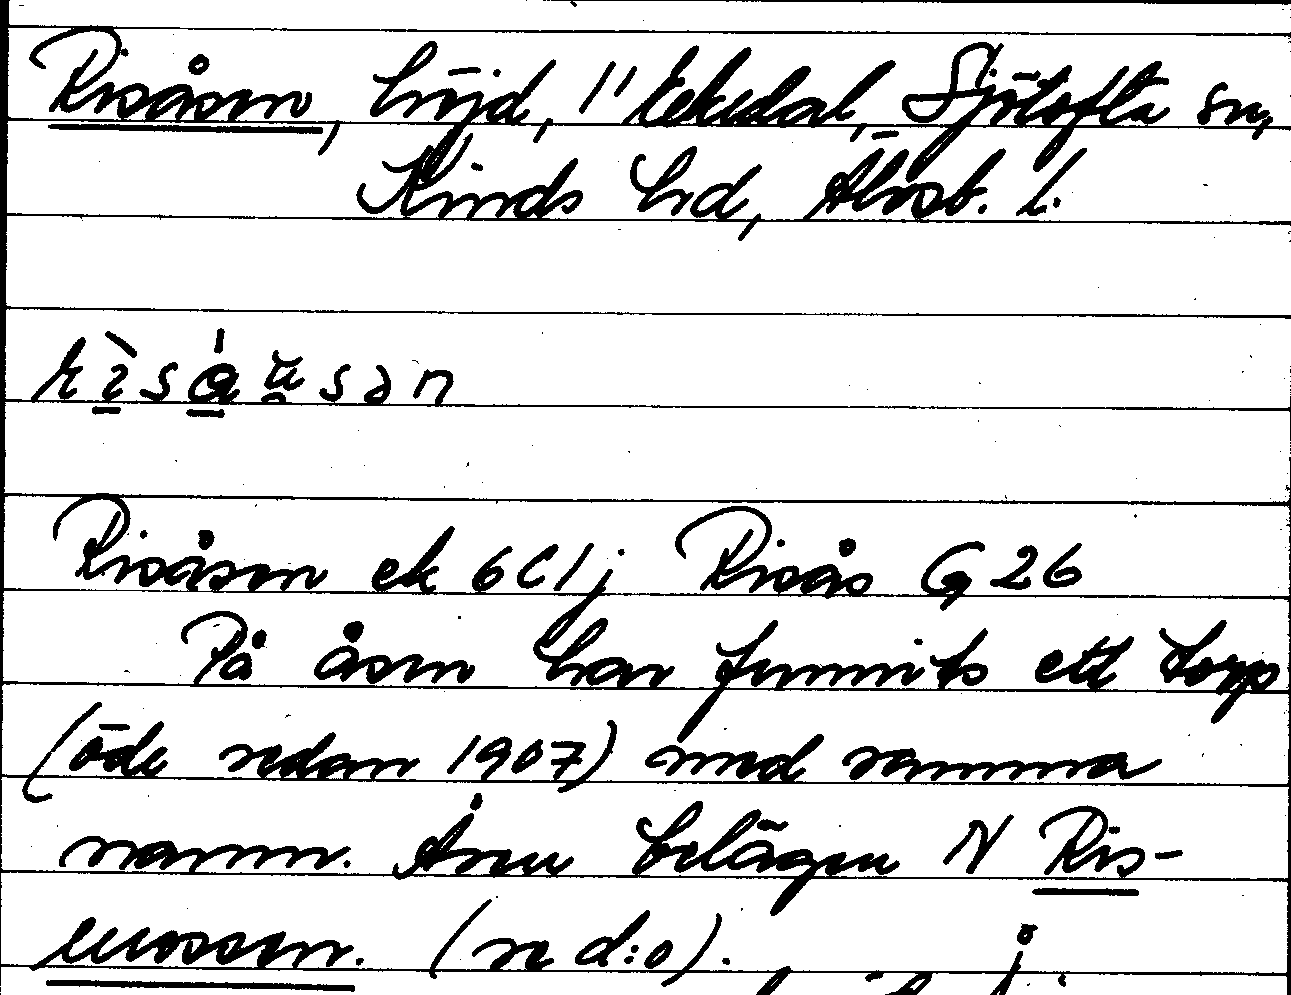 Risåsen, höjd, 1" Ekedal, Sjötofta sn,
Kinds hd, Älvsb. l.
Risåsen ek 6C1j Risås G 26
På åsen har funnits ett torp
(öde sedan 1907) med samma
namn. Åsen belägen N Ris-
mossen. (se d:o).